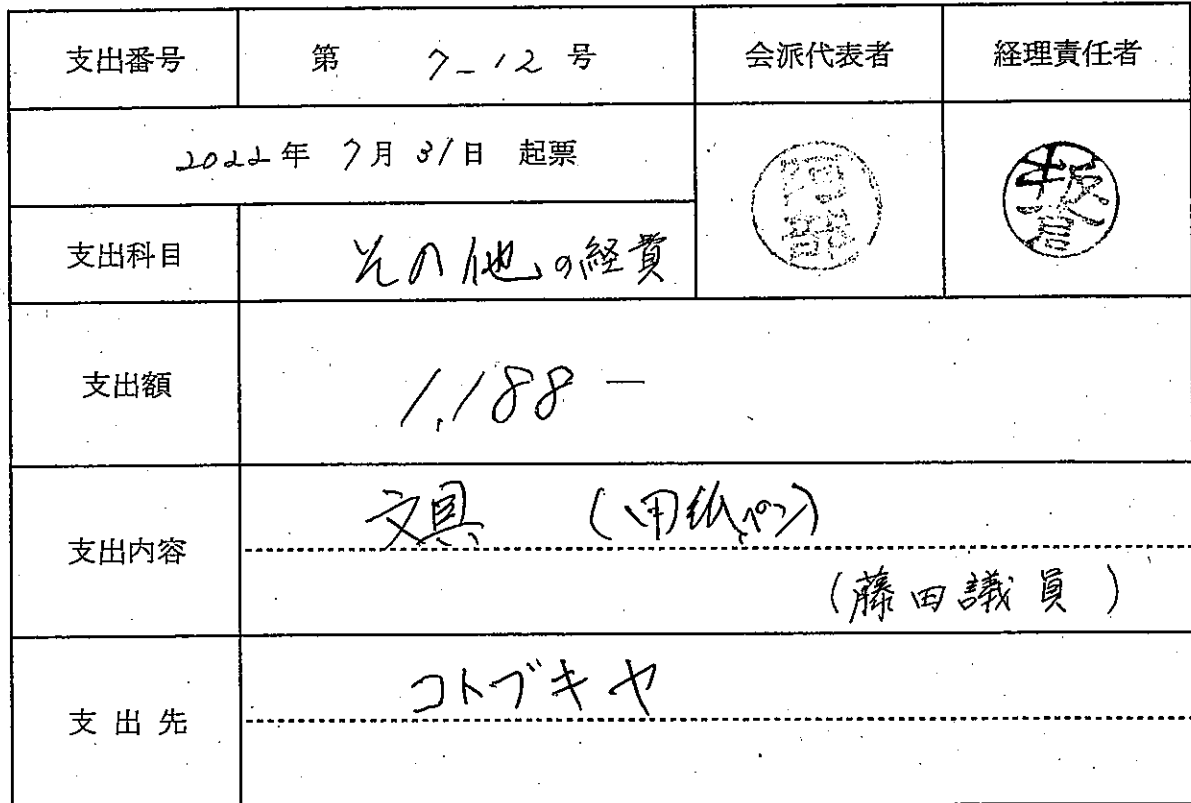 支出番号 第 7-12 号 会派代表者 経理責任者
2022年 7月 31日 起票
支出科目 その他の経費
支出額 1,188-
支出内容 文具 (用紙、ペン)
(藤田議員)
支出先 コトブキヤ